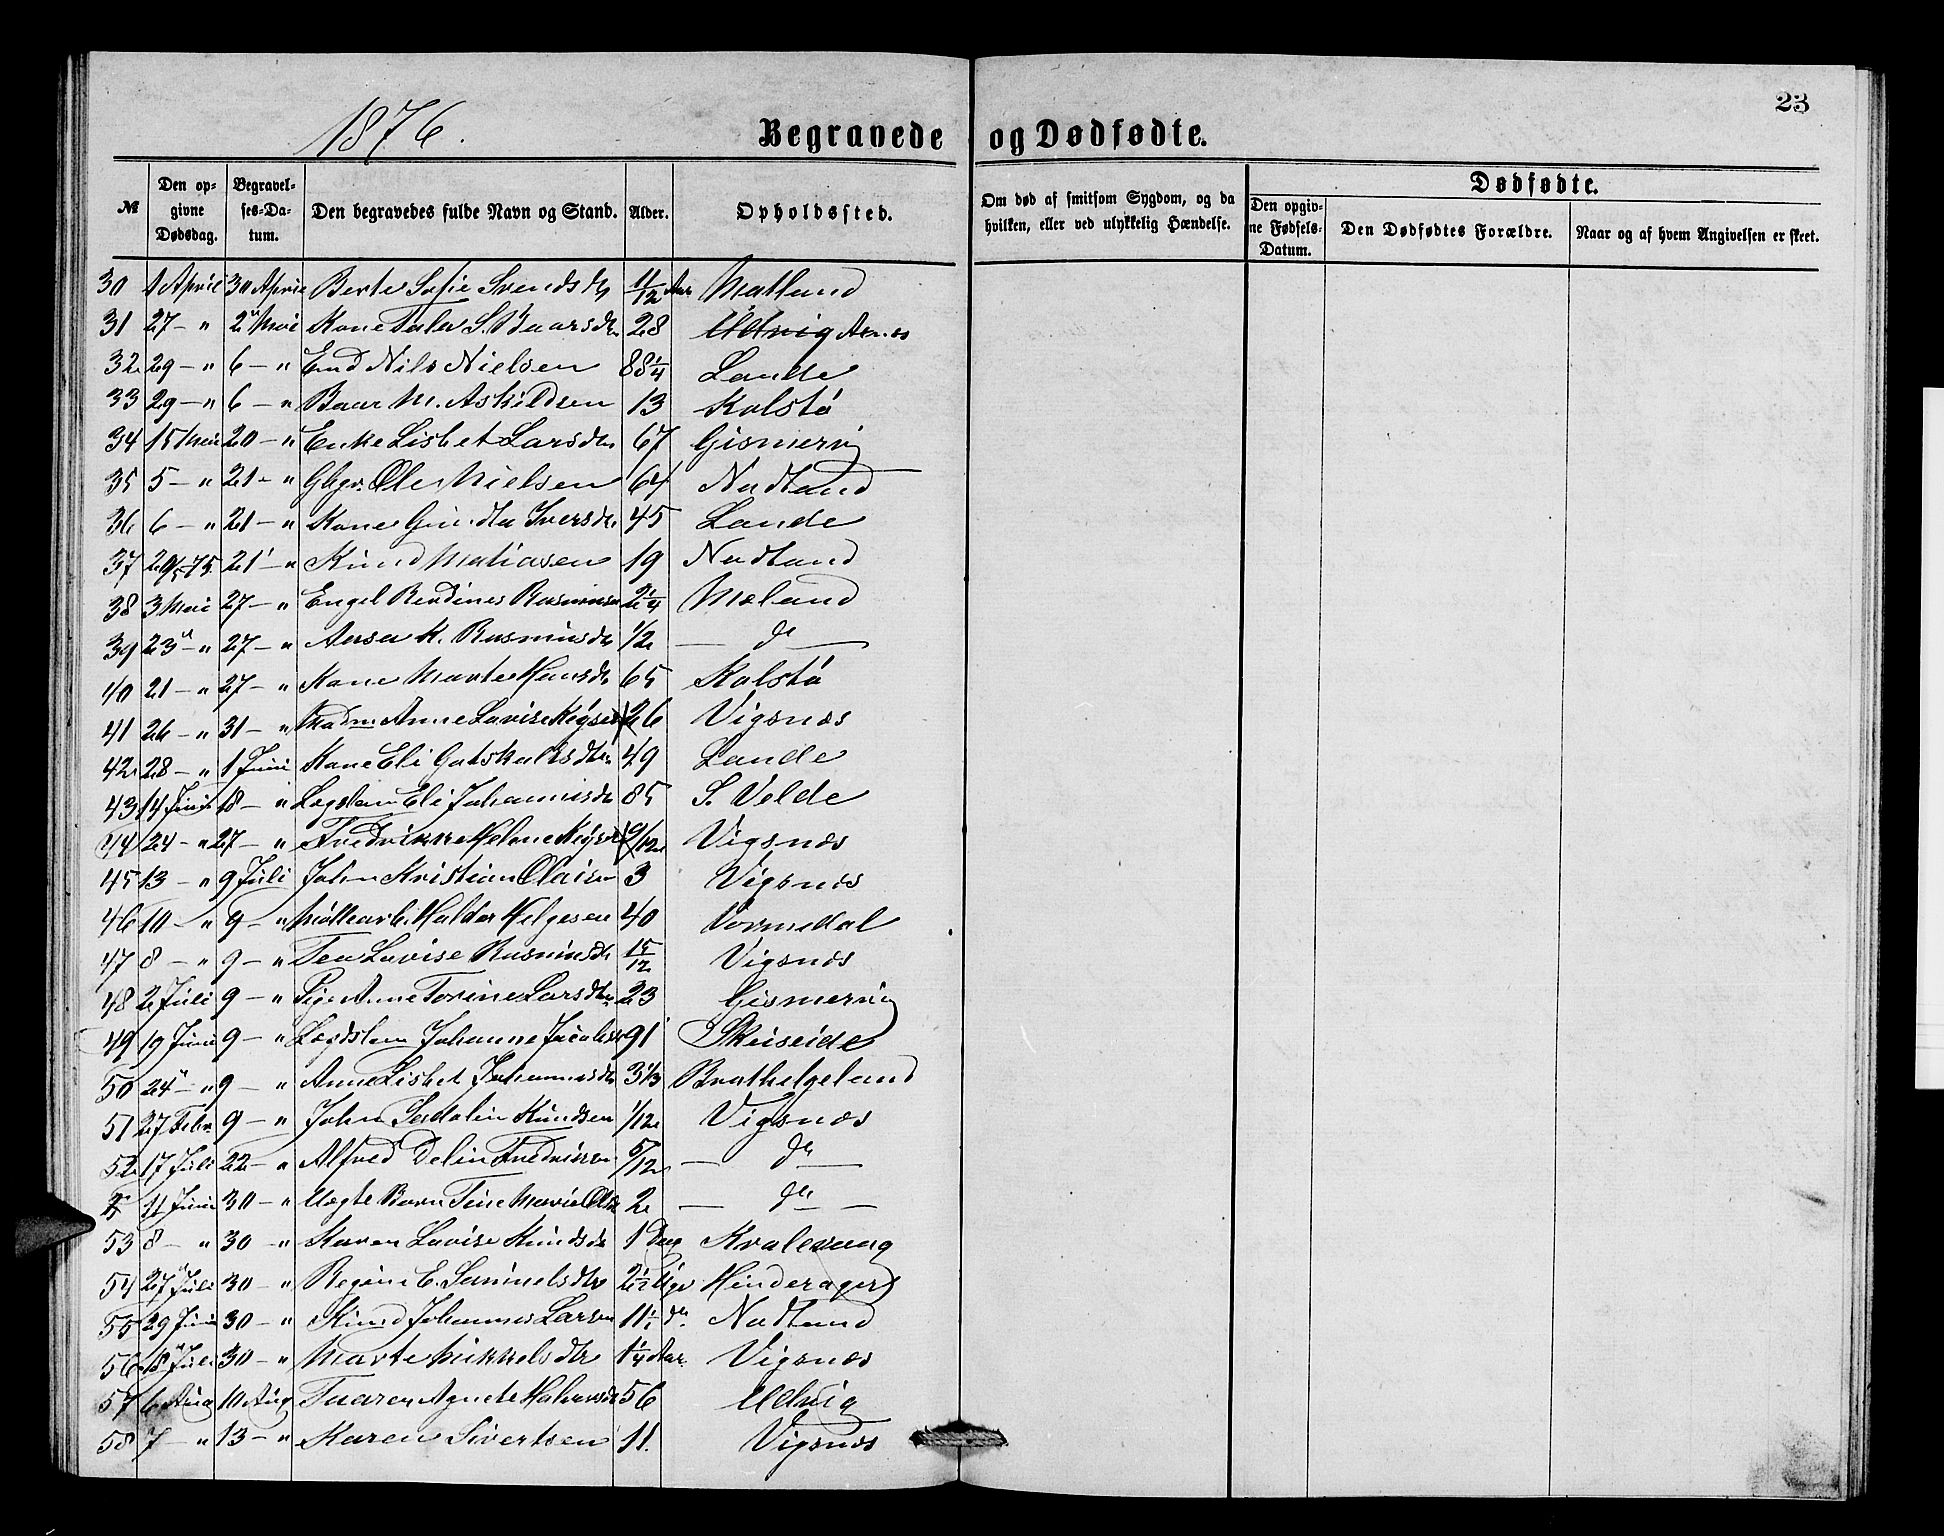 1876.
Begravede og Dødfødte.
23
№
Den opgivne Dødsdag.
Begravelses-Datum.
Den begravedes fulde Navn og Stand.
Alder.
Opholdssted.
Om død af smitsom Sygdom, og da hvilken, eller ved ulykkelig Hændelse.
Dødfødte.
Den opgivne Fødsels-Datum.
Den Dødfødtes Forældre.
Naar og af hvem Angivelsen er skeet.
30 1 April 30 April Berte Sofie Svendsdtr 11/12 Aar Matland
31 27 – " 2 Mai Kone S. Baarsdtr. 28 Utvig
32 29 – " 6 – " Enkm Nils Nielsen 88 1/4 Lande
33 29 – " 6 – " Baar M. Askildsen 13 Kolstø
34 15 Mai 20 – " Enke Lisbet Larsdtr 67 Gismervig
35 5 – " 21 – " Gbgr. Ole Nielsen 64 Nodland
36 6 – " 21 – " Kone Gunilda Iversdtr 45 Lande
37 29/5 75. 21 – " Knud Matiasen 19 Nodland
38 3 Mai 27 – " Engel Berdines Rasmussen 2 1/4 Mæland
39 23 – " 27 – " K. Rasmusdtr 1/2 – do –
40 21 – " 27 – " Kone Marte Hansdtr 65 Kolstø
41 26 – " 31 – " Madm. Anne Lovise Keyser 26 Vigsnæs
42 28 – " 1 Juni Kone Eli Gotskalksdtr 49 Lande
43 14 Juni 18 – " Lægdslem Eli Johannesdtr 85 S. Velde
44 24 – " 27 – " Fredrikke Helene Keyser 9/12 Vigsnæs
45 13 – " 9 Juli John Kristian Olaisen 3 Vigsnæs
46 10 – " 9 – " Haldor Helgesen 40 Vormedal
47 8 – " 9 – " Tea Lovise Rasmusdtr 15/12 Vigsnæs
48 2 Juli 9 – " Pige Anne Torine Larsdtr 23 Gismervig
49 19 Juni 9 – " Lægdslem Johanne Jacobsdtr 91 Skeiseide
50 24 – " 9 – " Anne Lisbet Johannesdtr 3 1/3 Brathelgeland
51 27 Febr 9 – " John Knudsen 1/12 Vigsnæs
52 17 Juli 22 – " Alfred Delin Fredriksen 5/12 – do –
11 Juni 30 – " Uægte Barn Tine Marie 2 – do –
53 8 – " 30 – " Karen Lovise Knudsdtr 1 Dag Kvalevaag
54 27 Juli 30 – " Regine E. Samuelsdtr 2 1/2 Uge Hinderager
55 29 Juni 30 – " Knud Johannes Larsen 11 1/2 do. Nodland
56 18 Juli 30 – " Marte Mikkelsdtr 1 1/4 Aar. Vigsnæs
57 6 Aug 10 Aug Agnete 56 Utvig
58 7 – " 13 – " Karen Sivertsen 11. Vigsnæs